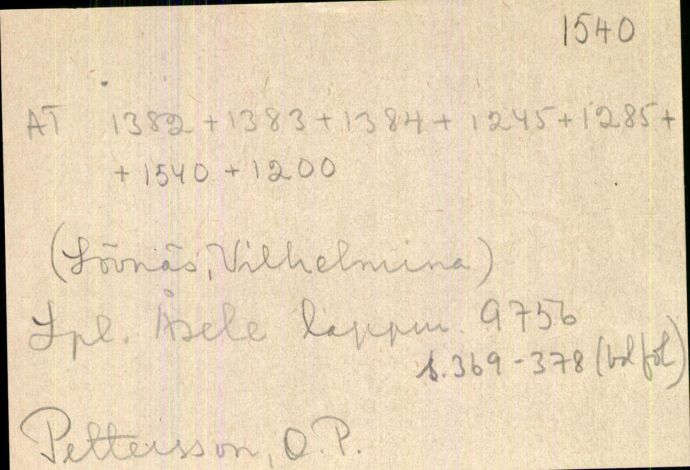 1540
AT 1382 + 1383 + 1384 + 1245 + 1285 +
+ 1540 + 1200
(Lövnäs, Vilhelmina)
Lpl. Åsele lappm. 9756
s. 369 - 378 (bd fol)
Pettersson, O.P.